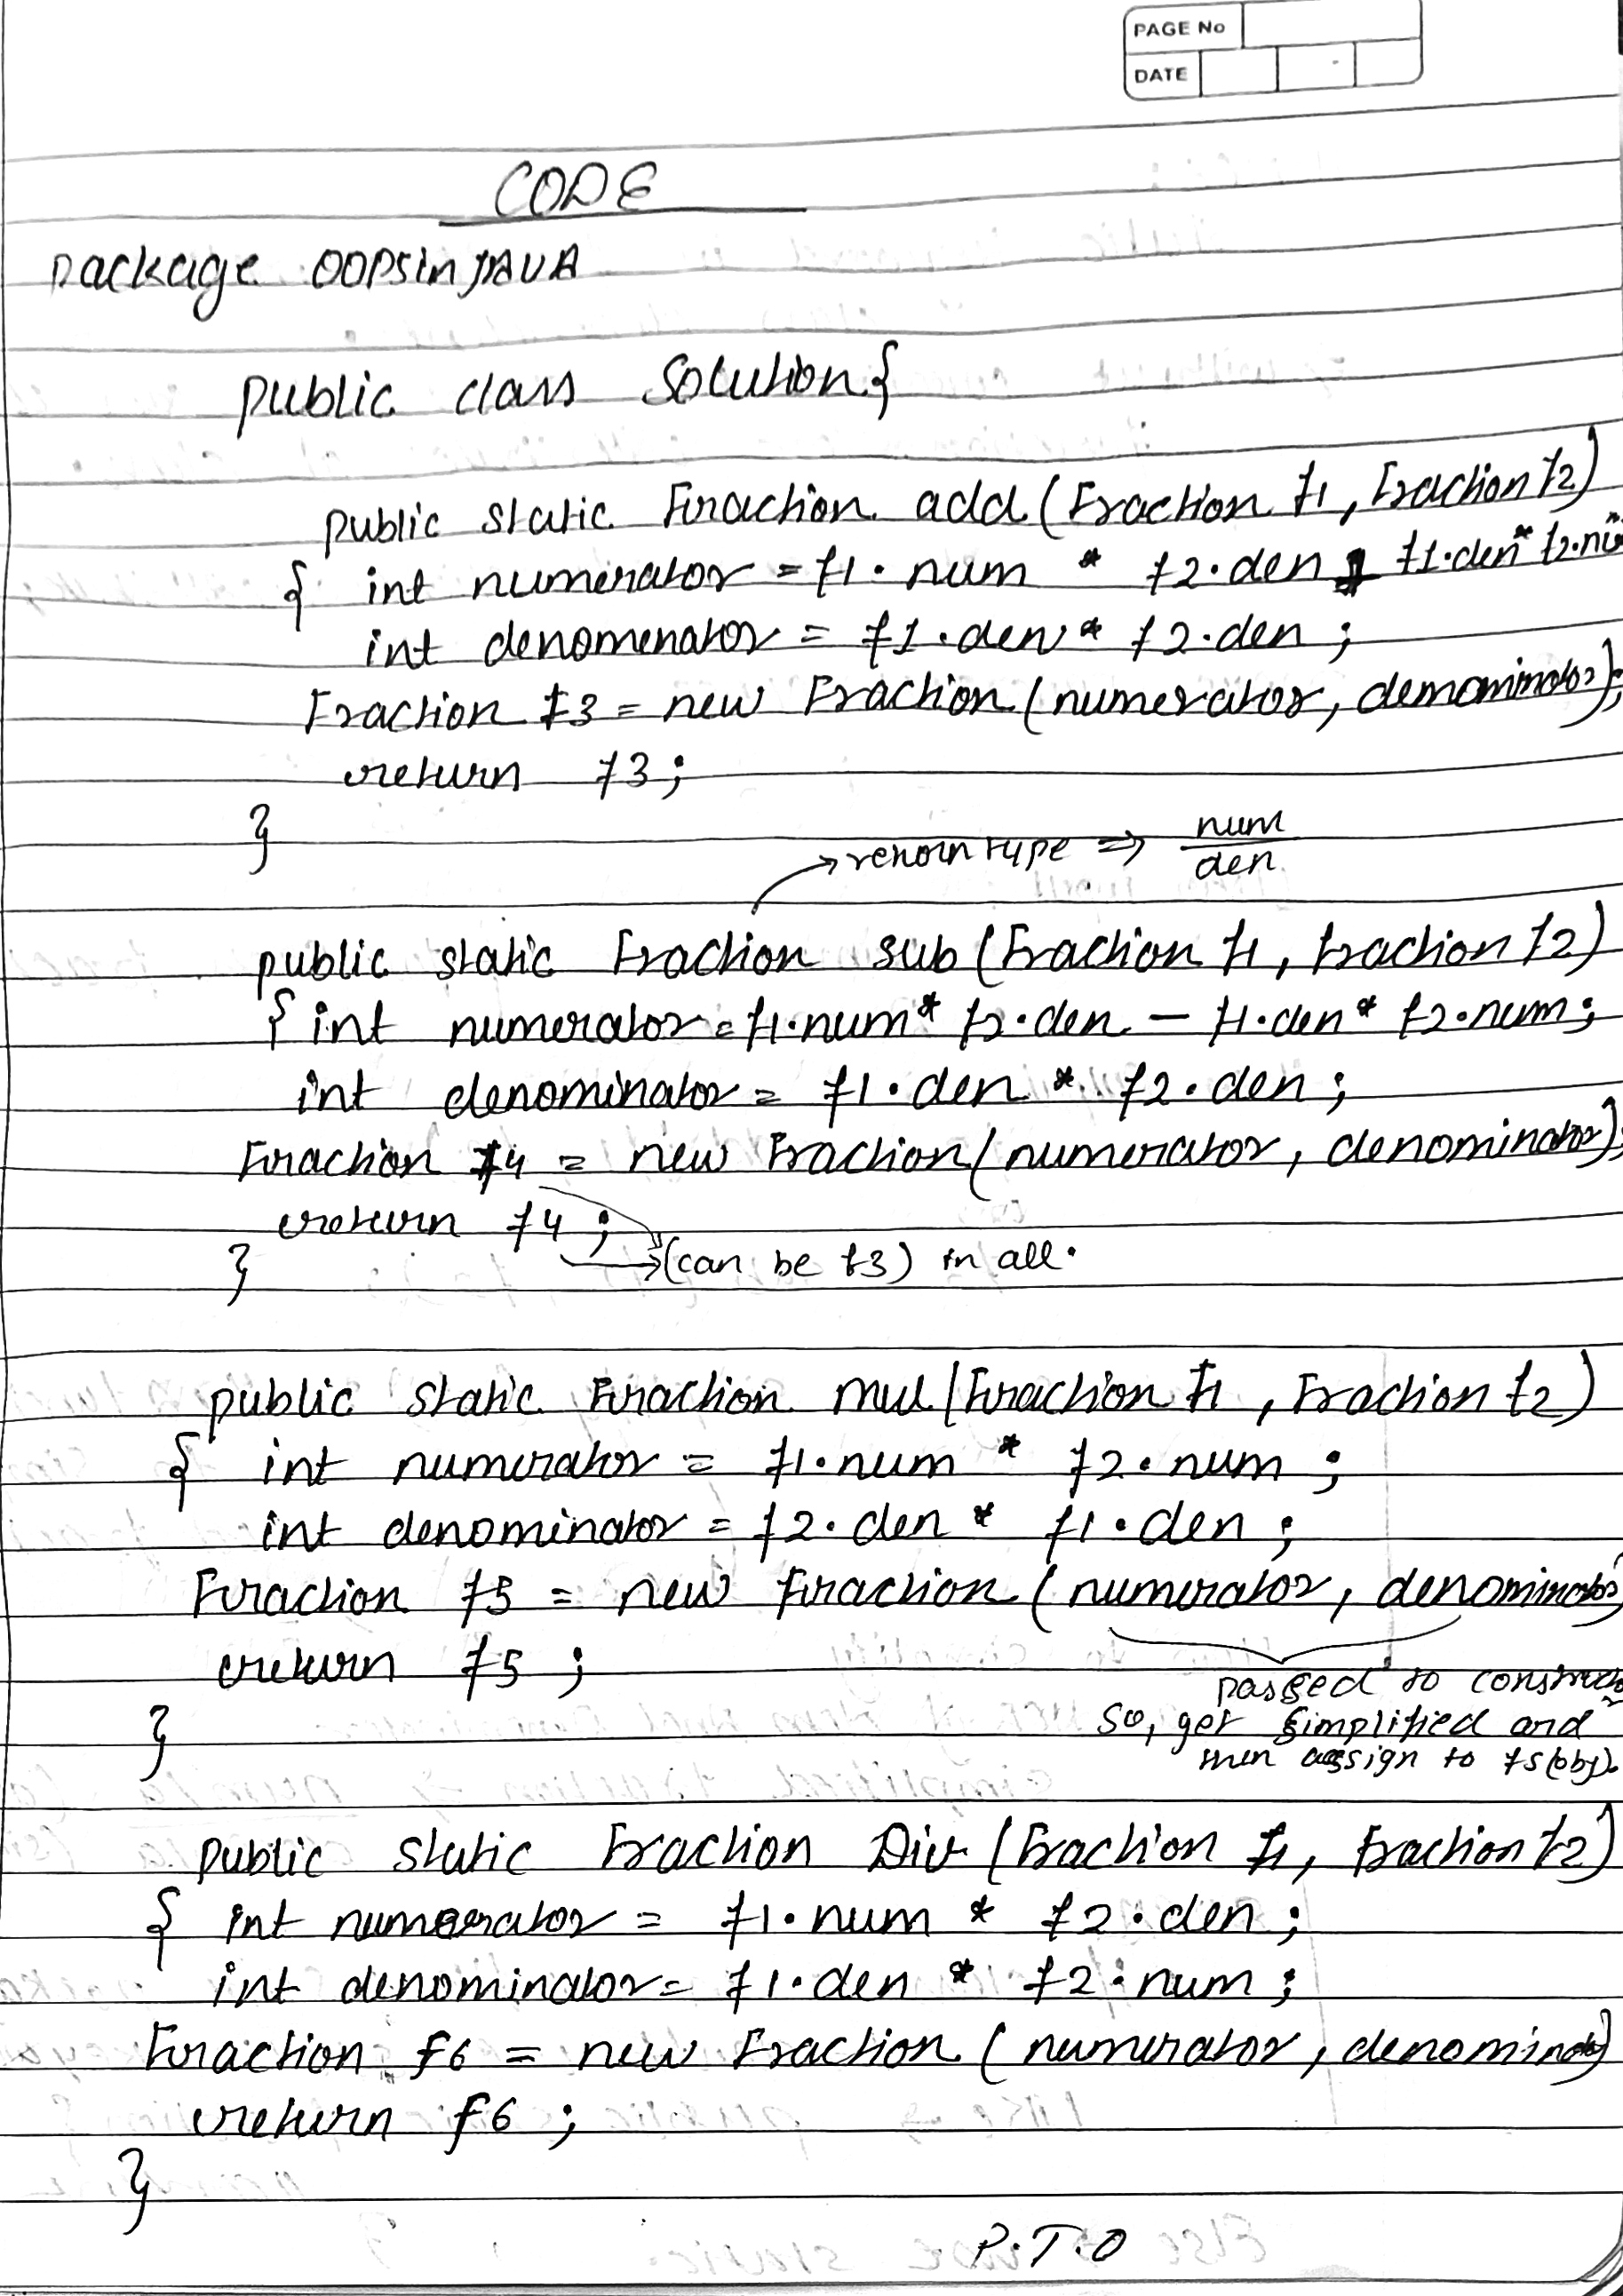 PAGE No
DATE
CODE
package OOPSinJAVA
public class Solution{
public static Fraction add(Fraction f1, Fraction f2)
{ int numerator = f1.num * f2.den + f1.den * f2.nu
int denomenator = f1.den * f2.den ;
Fraction f3 = new Fraction(numerator, demominator);
return f3;
}
return type ⇒ num
den
public static Fraction sub (Fraction f1, Fraction f2)
{ int numerator = f1.num * f2.den - f1.den * f2.num;
int denominator = f1.den * f2.den ;
Fraction f4 = new Fraction(numerator, denominator);
return f4 ;
→(can be f3) in all.
}
public static Fraction mul (Fraction f1, Fraction f2)
{ int numerator = f1.num * f2.num ;
int denominator = f2.den * f1.den ;
Fraction f5 = new Fraction (numerator, denominator)
return f5 ;
passed to construc
So, get simplified and
then assign to f5(obj).
}
public static Fraction Div (Fraction f1, Fraction f2)
{ int numerator = f1.num * f2.den ;
int denominator = f1.den * f2.num ;
Fraction f6 = new Fraction (numerator, denominator)
return f6 ;
}
P.T.O